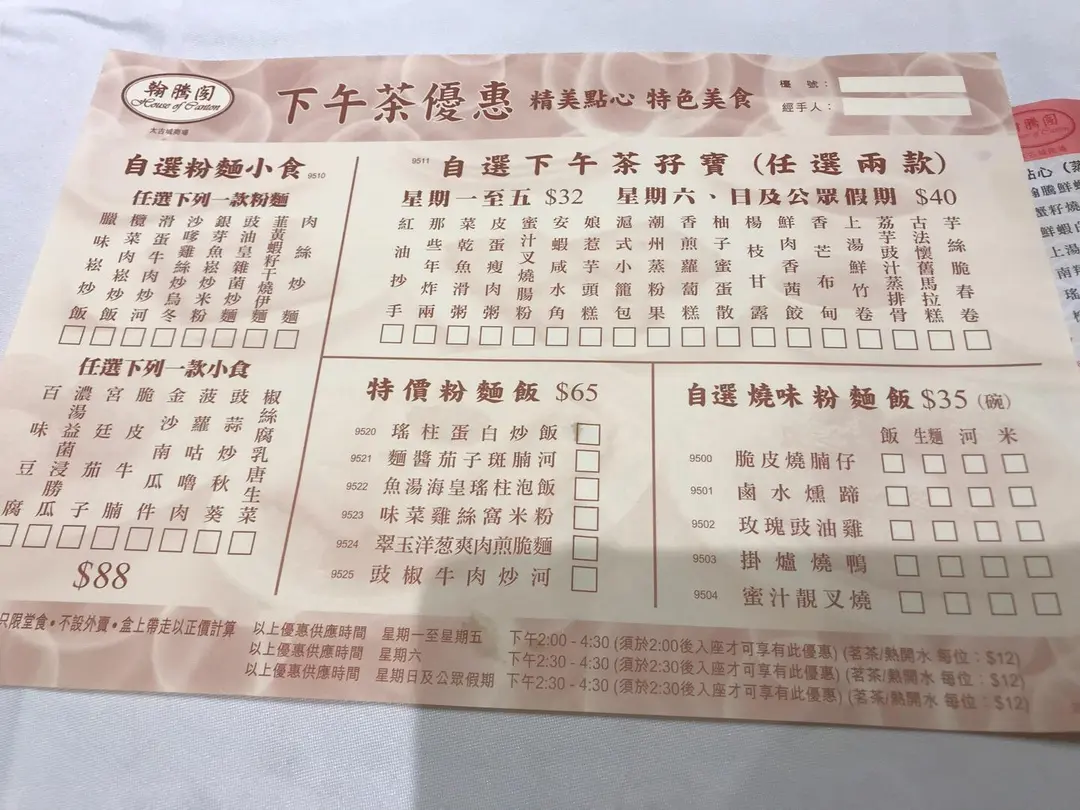 翰騰閣
House of Canton
太古城商場
下午茶優惠 精美點心 特色美食
檯 號：
經手人：
自選粉麵小食 9510
任選下列一款粉麵
臘味崧炒飯
欖菜肉崧炒飯
滑蛋牛肉炒河
沙嗲雞絲炒烏冬
銀芽魚崧炒米粉
豉油皇雜菌炒麵
韮黃蝦籽干燒伊麵
肉絲炒麵
任選下列一款小食
百味豆腐
濃湯益菌浸勝瓜
宮廷茄子
脆皮牛腩
金沙南瓜件
菠蘿咕嚕肉
豉蒜炒秋葵
椒絲腐乳唐生菜
$88
9511 自選下午茶孖寶 (任選兩款)
星期一至五 $32 星期六、日及公眾假期 $40
紅油抄手
那些年炸兩
菜乾魚滑粥
皮蛋瘦肉粥
蜜汁叉燒腸粉
安蝦咸水角
娘惹芋頭糕
滬式小籠包
潮州蒸粉果
香煎蘿蔔糕
柚子蜜蛋散
楊枝甘露
鮮肉香茜餃
香芒布甸
上湯鮮竹卷
荔芋豉汁蒸排骨
古法懷舊馬拉糕
芋絲脆春卷
特價粉麵飯 $65
9520 瑤柱蛋白炒飯
9521 麵醬茄子斑腩河
9522 魚湯海皇瑤柱泡飯
9523 味菜雞絲窩米粉
9524 翠玉洋葱爽肉煎脆麵
9525 豉椒牛肉炒河
自選燒味粉麵飯 $35 (碗)
飯 生麵 河 米
9500 脆皮燒腩仔
9501 鹵水燻蹄
9502 玫瑰豉油雞
9503 掛爐燒鴨
9504 蜜汁靚叉燒
只限堂食•不設外賣•盒上帶走以正價計算
以上優惠供應時間 星期一至星期五 下午2:00 - 4:30 (須於2:00後入座才可享有此優惠) (茗茶/熱開水 每位：$12)
以上優惠供應時間 星期六 下午2:30 - 4:30 (須於2:30後入座才可享有此優惠) (茗茶/熱開水 每位：$12)
以上優惠供應時間 星期日及公眾假期 下午2:30 - 4:30 (須於2:30後入座才可享有此優惠) (茗茶/熱開水 每位：$12)
點心 (蒸
翰騰鮮蝦
蟹籽燒
鮮蝦
上湯
南翔
瑤